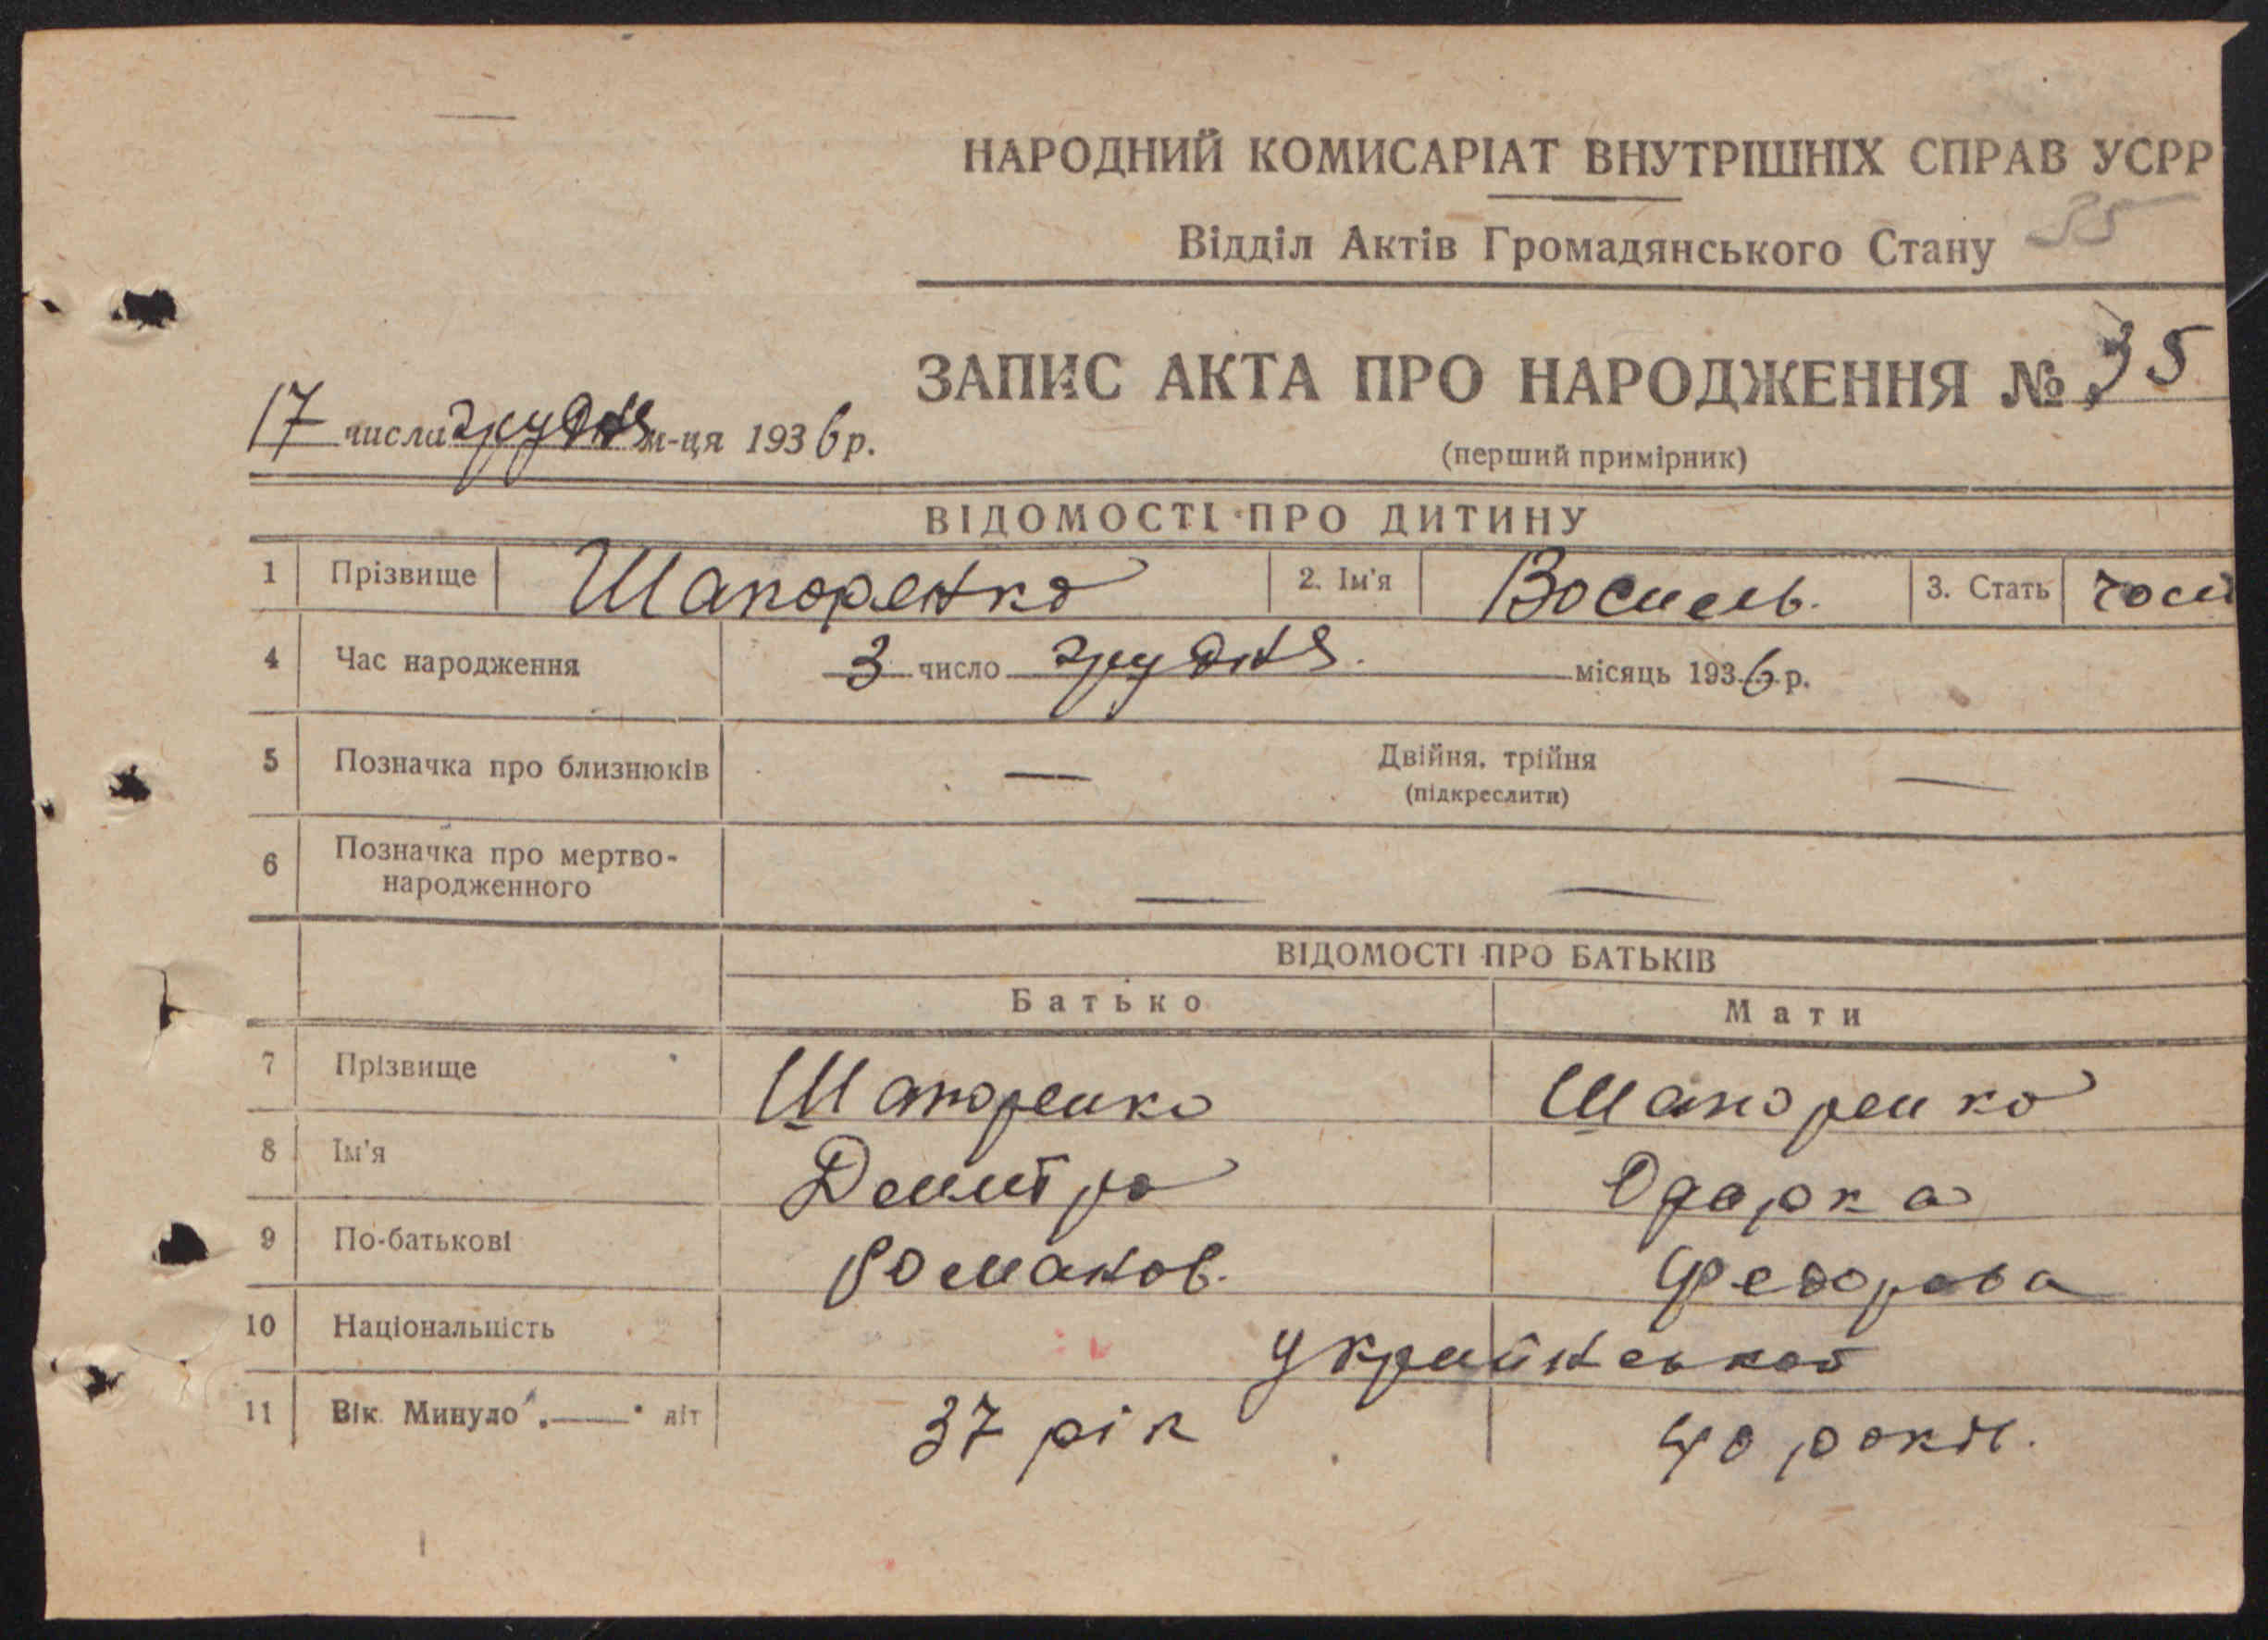 НАРОДНИЙ КОМИСАРІАТ ВНУТРІШНІХ СПРАВ УСРР
Відділ Актів Громадянського Стану 35
ЗАПИС АКТА ПРО НАРОДЖЕННЯ № 35
17 числа грудня м-ця 1936 р.
(перший примірник)
ВІДОМОСТІ ПРО ДИТИНУ
1 Прізвище Шапоренко 2. Ім'я Василь. 3. Стать
4 Час народження 3 число грудня. місяць 1936 р.
5 Позначка про близнюків — Двійня, трійня —
(підкреслити)
6 Позначка про мертво-
народженного — —
ВІДОМОСТІ ПРО БАТЬКІВ
Батько Мати
7 Прізвище Шапоренко Шапоренко
8 Ім'я Демитро Одарка
9 По-батькові Романов. Федорова
10 Національність українська
11 Вік Минуло „——" літ 37 рік 40 років.